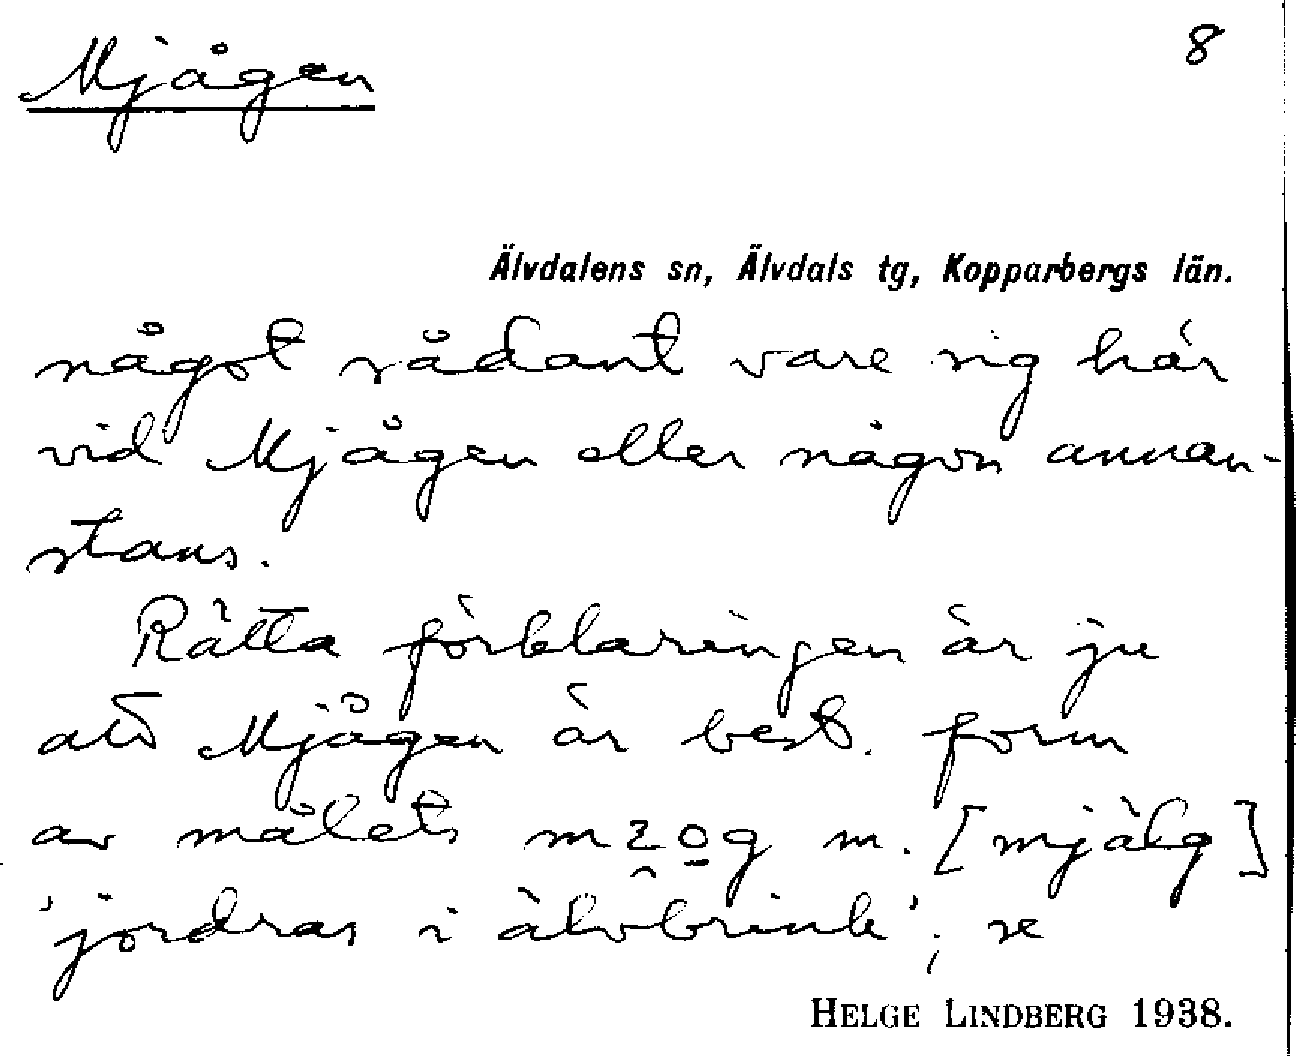 Mjågen
8
Älvdalens sn, Älvdals tg, Kopparbergs län.
något sådant vare sig här
vid Mjågen eller någon annan-
stans.
Rätta förklaringen är ju
att Mjågen är best. form
av målets m. [mjälg]
'jordras i älvbrink'; se
HELGE LINDBERG 1938.